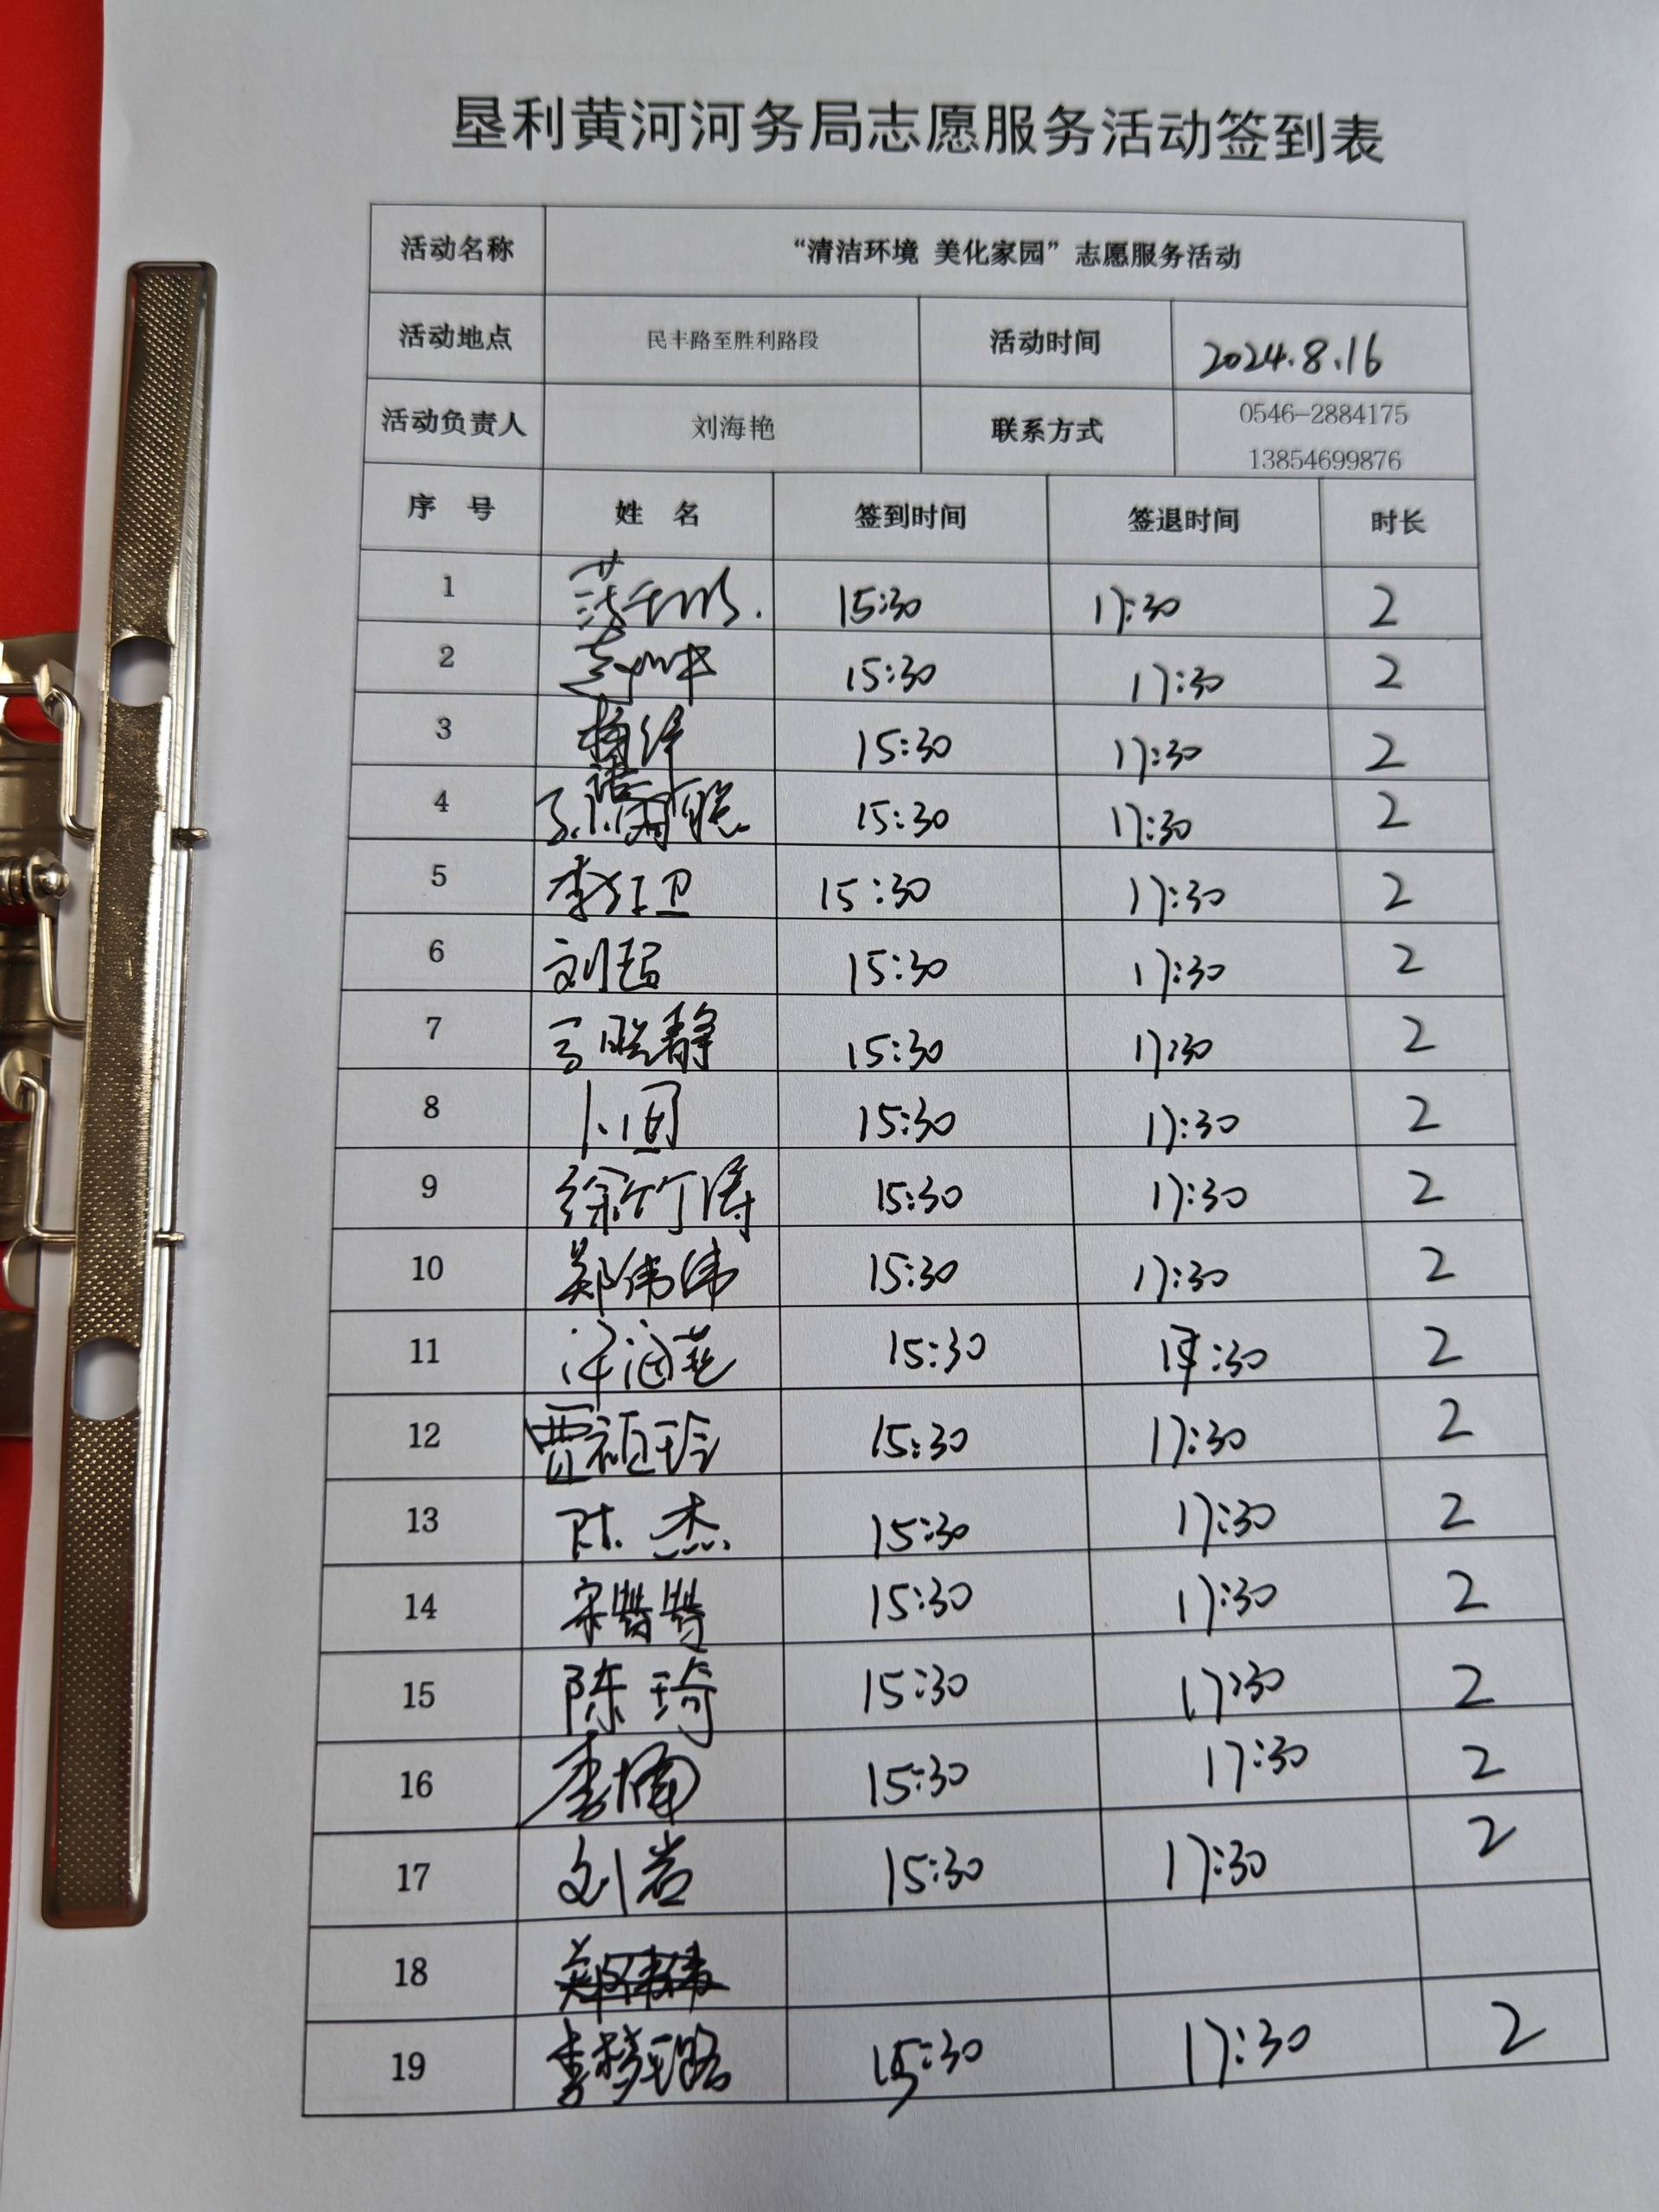 垦利黄河河务局志愿服务活动签到表
活动名称 “清洁环境 美化家园”志愿服务活动
活动地点 民丰路至胜利路段 活动时间 2024.8.16
活动负责人 刘海艳 联系方式 0546-2884175
13854699876
序 号 姓 名 签到时间 签退时间 时长
1 15:30 17:30 2
2 15:30 17:30 2
3 15:30 17:30 2
4 15:30 17:30 2
5 李红卫 15:30 17:30 2
6 刘 15:30 17:30 2
7 晓静 15:30 17:30 2
8 15:30 17:30 2
9 徐竹涛 15:30 17:30 2
10 郑伟伟 15:30 17:30 2
11 15:30 17:30 2
12 贾 玲 15:30 17:30 2
13 陈杰 15:30 17:30 2
14 宋 15:30 17:30 2
15 陈琦 15:30 17:30 2
16 李楠 15:30 17:30 2
17 刘岩 15:30 17:30 2
18 郑伟伟
19 李梦璐 15:30 17:30 2